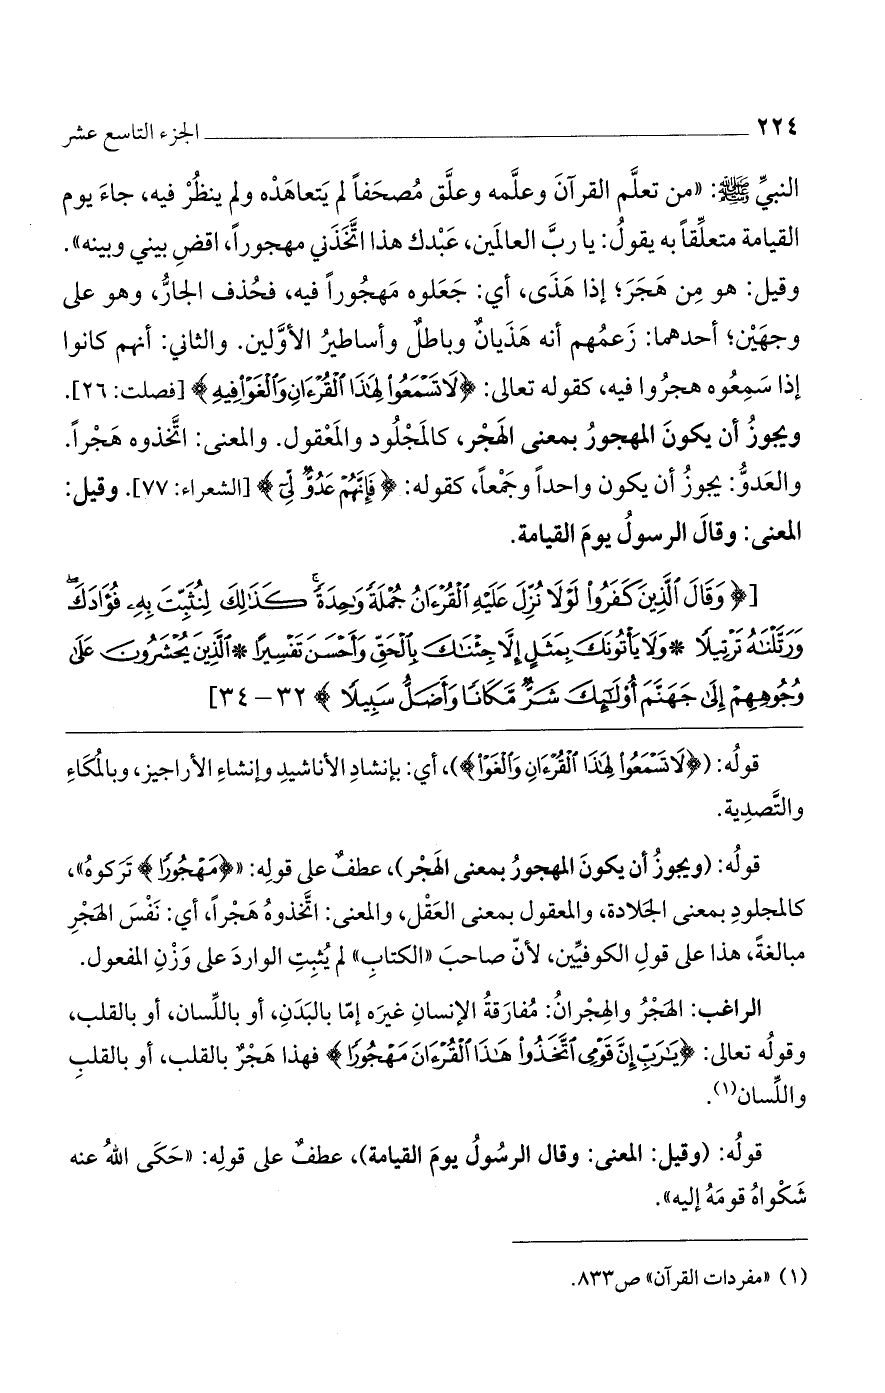 ٢٢٤ الجزء التاسع عشر
النبيِّ ﷺ: «من تعلَّم القرآنَ وعلَّمه وعلَّق مُصحَفاً لم يَتعاهَدْه ولم ينظُرْ فيه، جاءَ يوم
القيامة متعلِّقاً به يقولُ: يا ربَّ العالمَين، عَبْدك هذا اتَّخَذَني مهجوراً، اقضِ بيني وبينه».
وقيل: هو مِن هَجَرَ؛ إذا هَذَى، أي: جَعَلوه مَهجُوراً فيه، فحُذف الجارُّ، وهو على
وجهَيْن؛ أحدهما: زَعمُهم أنه هَذَيانٌ وباطلٌ وأساطيرُ الأوَّلين. والثاني: أنهم كانوا
إذا سَمِعُوه هجرُوا فيه، كقوله تعالى: ﴿لَا تَسْمَعُوا۟ لِهَٰذَا ٱلْقُرْءَانِ وَٱلْغَوْا۟ فِيهِ﴾ [فصلت: ٢٦].
ويجوزُ أن يكونَ المهجورُ بمعنى الهَجْر، كالمَجْلُود والمَعْقول. والمعنى: اتَّخذوه هَجْراً.
والعَدوُّ: يجوزُ أن يكون واحداً وجَمْعاً، كقوله: ﴿فَإِنَّهُمْ عَدُوٌّ لِّىٓ﴾ [الشعراء: ٧٧]. وقيل:
المعنى: وقالَ الرسولُ يومَ القيامة.
[﴿وَقَالَ ٱلَّذِينَ كَفَرُوا۟ لَوْلَا نُزِّلَ عَلَيْهِ ٱلْقُرْءَانُ جُمْلَةً وَٰحِدَةً ۚ كَذَٰلِكَ لِنُثَبِّتَ بِهِۦ فُؤَادَكَ ۖ
وَرَتَّلْنَٰهُ تَرْتِيلًا * وَلَا يَأْتُونَكَ بِمَثَلٍ إِلَّا جِئْنَٰكَ بِٱلْحَقِّ وَأَحْسَنَ تَفْسِيرًا * ٱلَّذِينَ يُحْشَرُونَ عَلَىٰ
وُجُوهِهِمْ إِلَىٰ جَهَنَّمَ أُو۟لَٰٓئِكَ شَرٌّ مَّكَانًا وَأَضَلُّ سَبِيلًا﴾ ٣٢-٣٤]
قولُه: (﴿لَا تَسْمَعُوا۟ لِهَٰذَا ٱلْقُرْءَانِ وَٱلْغَوْا۟﴾)، أي: بإنشادِ الأناشيدِ وإنشاءِ الأراجيز، وبالمُكَاءِ
والتَّصدِية.
قولُه: (ويجوزُ أن يكونَ المهجورُ بمعنى الهَجْر)، عطفٌ على قولِه: «﴿مَهْجُورًا﴾ تَرَكوهُ»،
كالمجلودِ بمعنى الجَلادة، والمعقول بمعنى العَقْل، والمعنى: اتَّخذوهُ هَجْراً، أي: نَفْسَ الهَجْرِ
مبالغةً، هذا على قولِ الكوفيِّين، لأنّ صاحبَ «الكتابِ» لم يُثبِتِ الواردَ على وَزْنِ المفعول.
الراغب: الهَجْرُ والهِجْرانُ: مُفارَقةُ الإنسانِ غيرَه إمّا بالبَدَنِ، أو باللِّسان، أو بالقلب،
وقولُه تعالى: ﴿يَٰرَبِّ إِنَّ قَوْمِى ٱتَّخَذُوا۟ هَٰذَا ٱلْقُرْءَانَ مَهْجُورًا﴾ فهذا هَجْرٌ بالقلب، أو بالقلبِ
واللِّسان(١).
قولُه: (وقيل: المعنى: وقال الرسُولُ يومَ القيامة)، عطفٌ على قولِه: «حَكَى اللهُ عنه
شَكْواهُ قومَهُ إليه».
(١) «مفردات القرآن» ص٨٣٣.